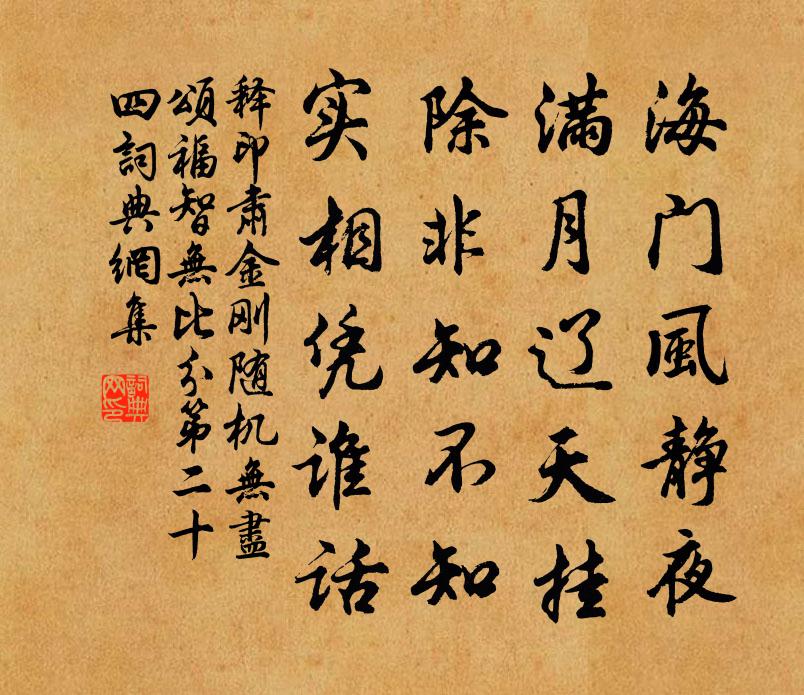 海门風静夜
满月辽天挂
除非知不知
实相凭谁话
释印肃金刚随机無盡
頌福智無比分第二十
四詞典網集
詞典网印